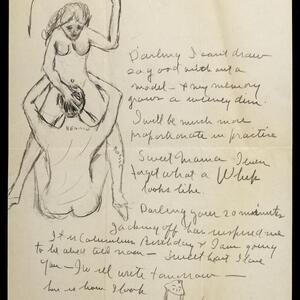 Darling I can't draw
so good without a
model — & my memory
grows a wee dim
I will be much more
proportionate in practice
Sweet Mama I even
forget what a Whip
looks like.
Darling your 20 minutes
Jacking off has inspired me
It is Columbus Birthday & I am going
to be abed till noon — Sweet heart I love
you — I will write tomorrow —
here is how I look